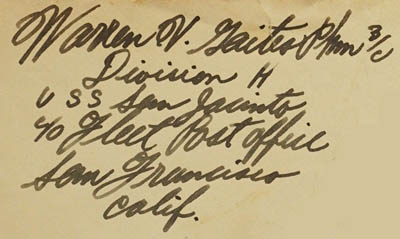 Warren V. Gaites Phm 3/c
Division H
U S S San Jacinto
c/o Fleet Post office
San Francisco
Calif.